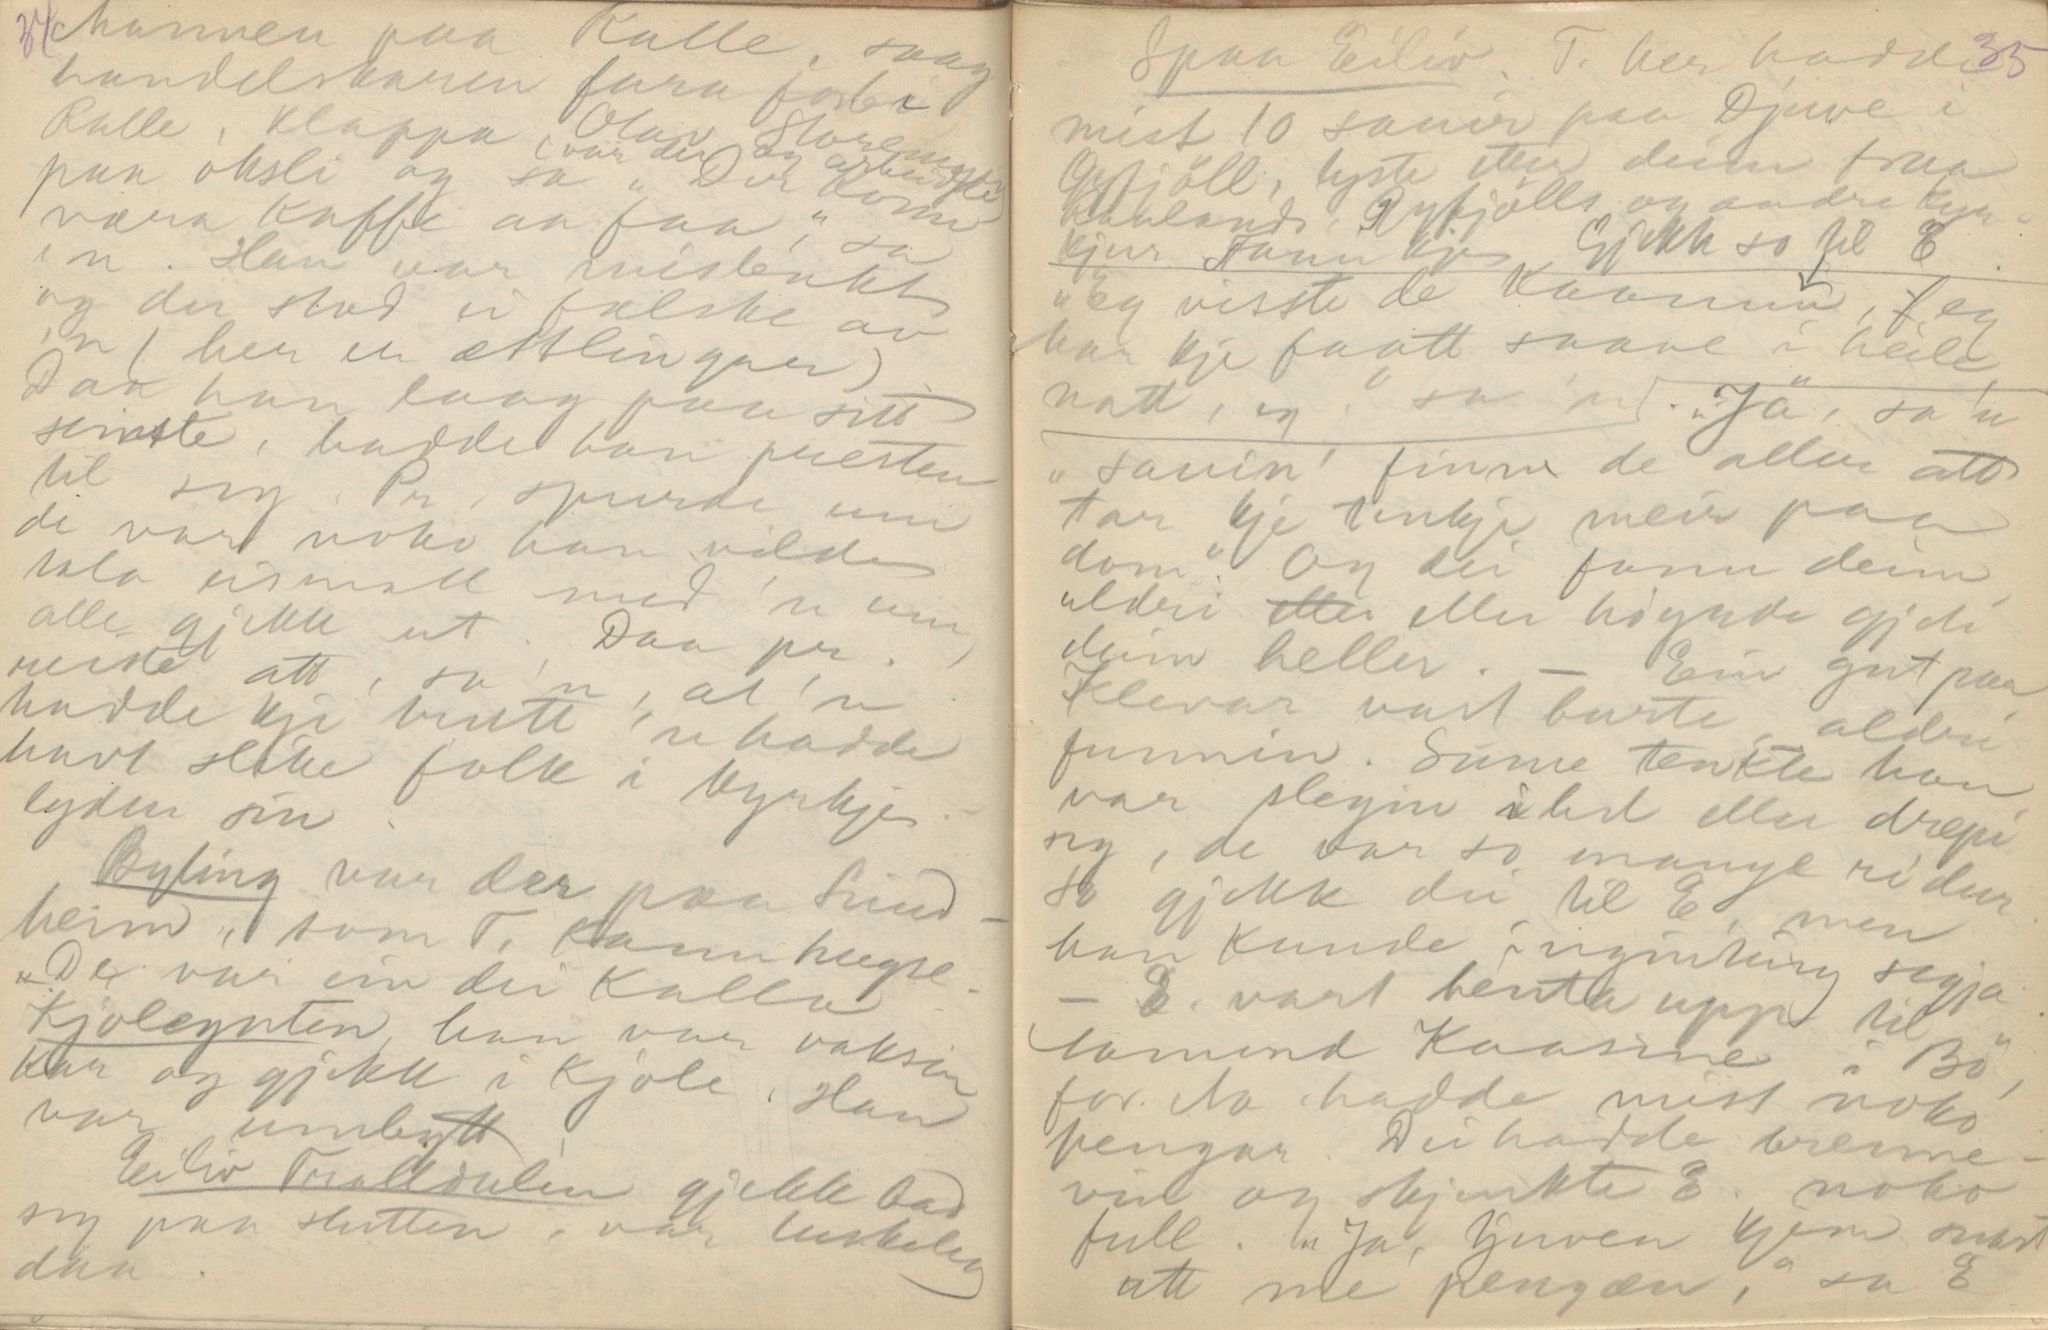 34
mannen paa Kalle, saag
handelskaren fara forbi
Kalle, klappa Olav Storemoen
(var der og arbeidde)
paa oksli og sa „Der kom
væra kaffi aa faa," sa
'n. Han var mistenkt
og der stod ei følske av
'n (her er ættlingar)
Daa han laag paa sitt
seinste, hadde han presten
til seg. Pr. spurde um
de var noko han vilde
tala eismall med 'n um,
alle gjekk ut. Daa pr.
reiste att, sa 'n, at 'n
hadde kje trutt 'n hadde
havt slike folk i kyrkje-
lyden sin.
Byting var der paa Sund-
heim, som T. kann hugse.
„De var ein dei kalla
Kjoleguten, han var vaksin
kar og gjekk i kjole. Han
var umbytt
Eiliv Trolldalen gjekk bad
seg paa slutten, var huskeleg
daa.
35
Spaa Eiliv. T. her hadde
mist 10 sauir paa Djuve i
Øyfjöll, lyste etter deim fraa
Raulands, Øyfjölls og andre kyr-
kjur. Fann kje. Gjekk so til E.
„Eg visste de Kaamaa, eg
har kje faatt saave i heile
natt, eg," sa 'n. „Jä", sa 'n
„sauin' finn de aller att
tar kje tenkje meir paa
dom" Og dei fann deim
aldri eller eller höyrde gjeti
deim heller. — Ein gut paa
Klevar vart burte, aldri
funnin. Sume tenkte han
var slegin ihel eller drepi
seg, de var so mange ridur.
So gjekk dei til E, men
han kunde ingenting segja
— E. vart henta upp til
Aamund Kaasine i Bö,
for Aa. hadde mist noko
pengar. Dei hadde brenne-
vin og skjenkte E. noko
full. „Ja, tjuven kjem snart
att me pengæn," sa E